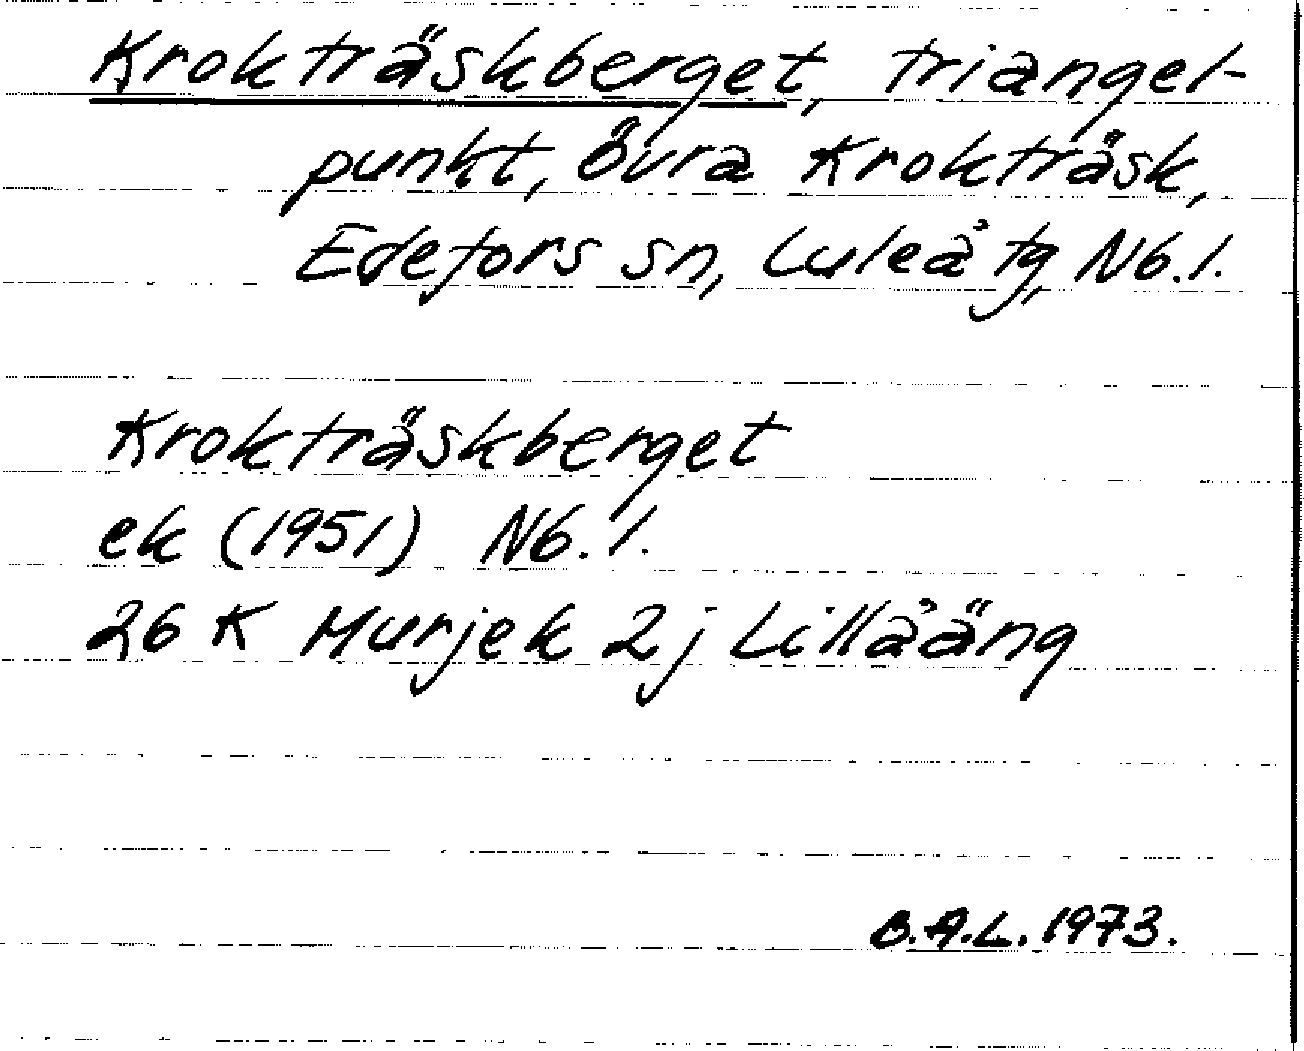 Krokträskberget, triangel-
punkt, Övra Krokträsk,
Edefors sn, Luleå tg, Nb.l.
Krokträskberget
ek (1951) Nb.l.
26 K Murjek 2j Lillåäng
B.A.L. 1973.